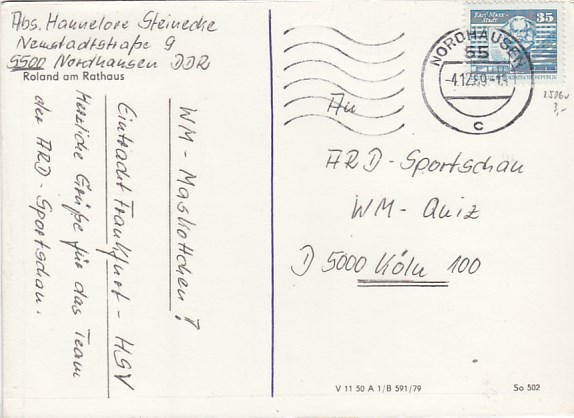 Abs. Hannelore Steinecke
Neustadtstraße 9
5500 Nordhausen DDR
Roland am Rathaus
WM - Maskottchen?
Eintracht Frankfurt - HSV
Herzliche Grüße für das Team
der ARD - Sportschau.
35
NORDHAUSEN
55
-4.12.89-
c
3,-
An
ARD-Sportschau
WM-Quiz
D 5000 Köln 100
V 11 50 A 1/B 591/79
So 502